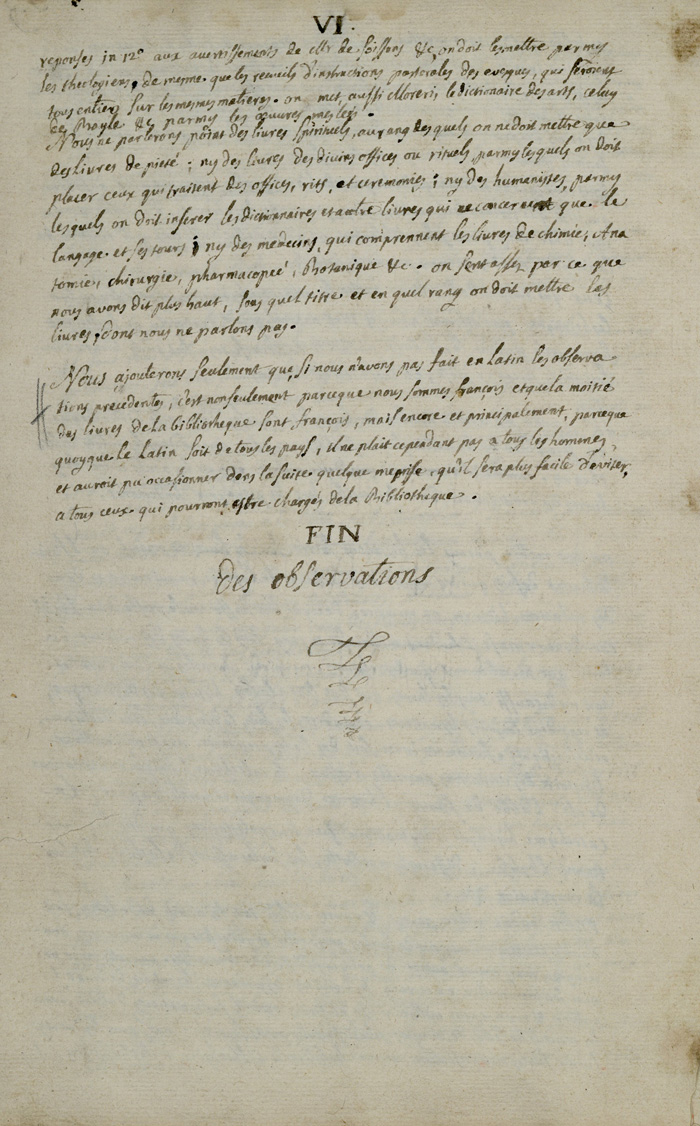 VI.
reponses in 12° aux avertissements de Mr de Soissons &c, on doit les mettre parmy
les theologiens, de mesme que les recueils d'instructions pastorales des evesques, qui seroient
tous entiers sur les mesmes matieres. on met aussi Moreri, le dictionaire des arts, celuy
de Bayle &c parmy les œuvres meslés.
Nous ne parlerons point des livres spirituels, au rang desquels on ne doit mettre que
des livres de pieté ; ny des livres des divins offices ou rituels, parmy lesquels on doit
placer ceux qui traitent des offices, rits, et ceremonies ; ny des humanistes, parmy
lesquels on doit inserer les dictionnaires et autre livres qui ne concernent que le
langage et ses tours ; ny des medecins, qui comprennent les livres de chimie, Ana
tomie, chirurgie, pharmacopeé, Botanique &c. on sent assez par ce que
nous avons dit plus haut, sous quel titre et en quel rang on doit mettre les
livres, dont nous ne parlons pas.
Nous ajouterons seulement que, si nous n'avons pas fait en Latin les observa
tions precedentes, c'est nonseulement parceque nous sommes françois et que la moitié
des livres de la bibliotheque sont françois, mais encore et principalement, parceque
quoyque le Latin soit de tous les pays, il ne plait cependant pas a tous les hommes,
et auroit pu occasionner dans la suite quelque meprise qu'il sera plus facile d'eviter,
a tous ceux qui pourront estre chargés de la Bibliotheque.
FIN
Des observations